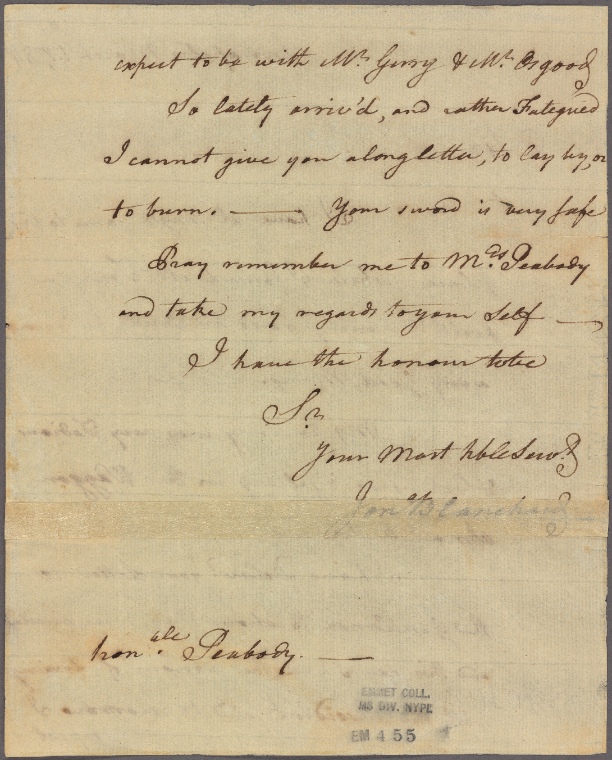 expect to be with Mr. Gerry & Mr. Osgood
So lately arriv'd, and rather Fategued
I cannot give you along letter, to lay by, or
to burn. —— Your sword is very safe
Pray remember me to Mrs. Peabody
and take my regards to your Self —
I have the honour to be
Sr.
Your Most Hble Servt.
Jona Blanchard
honable. Peabody. —
EMMET COLL.
MS DIV. NYPL
EM 455